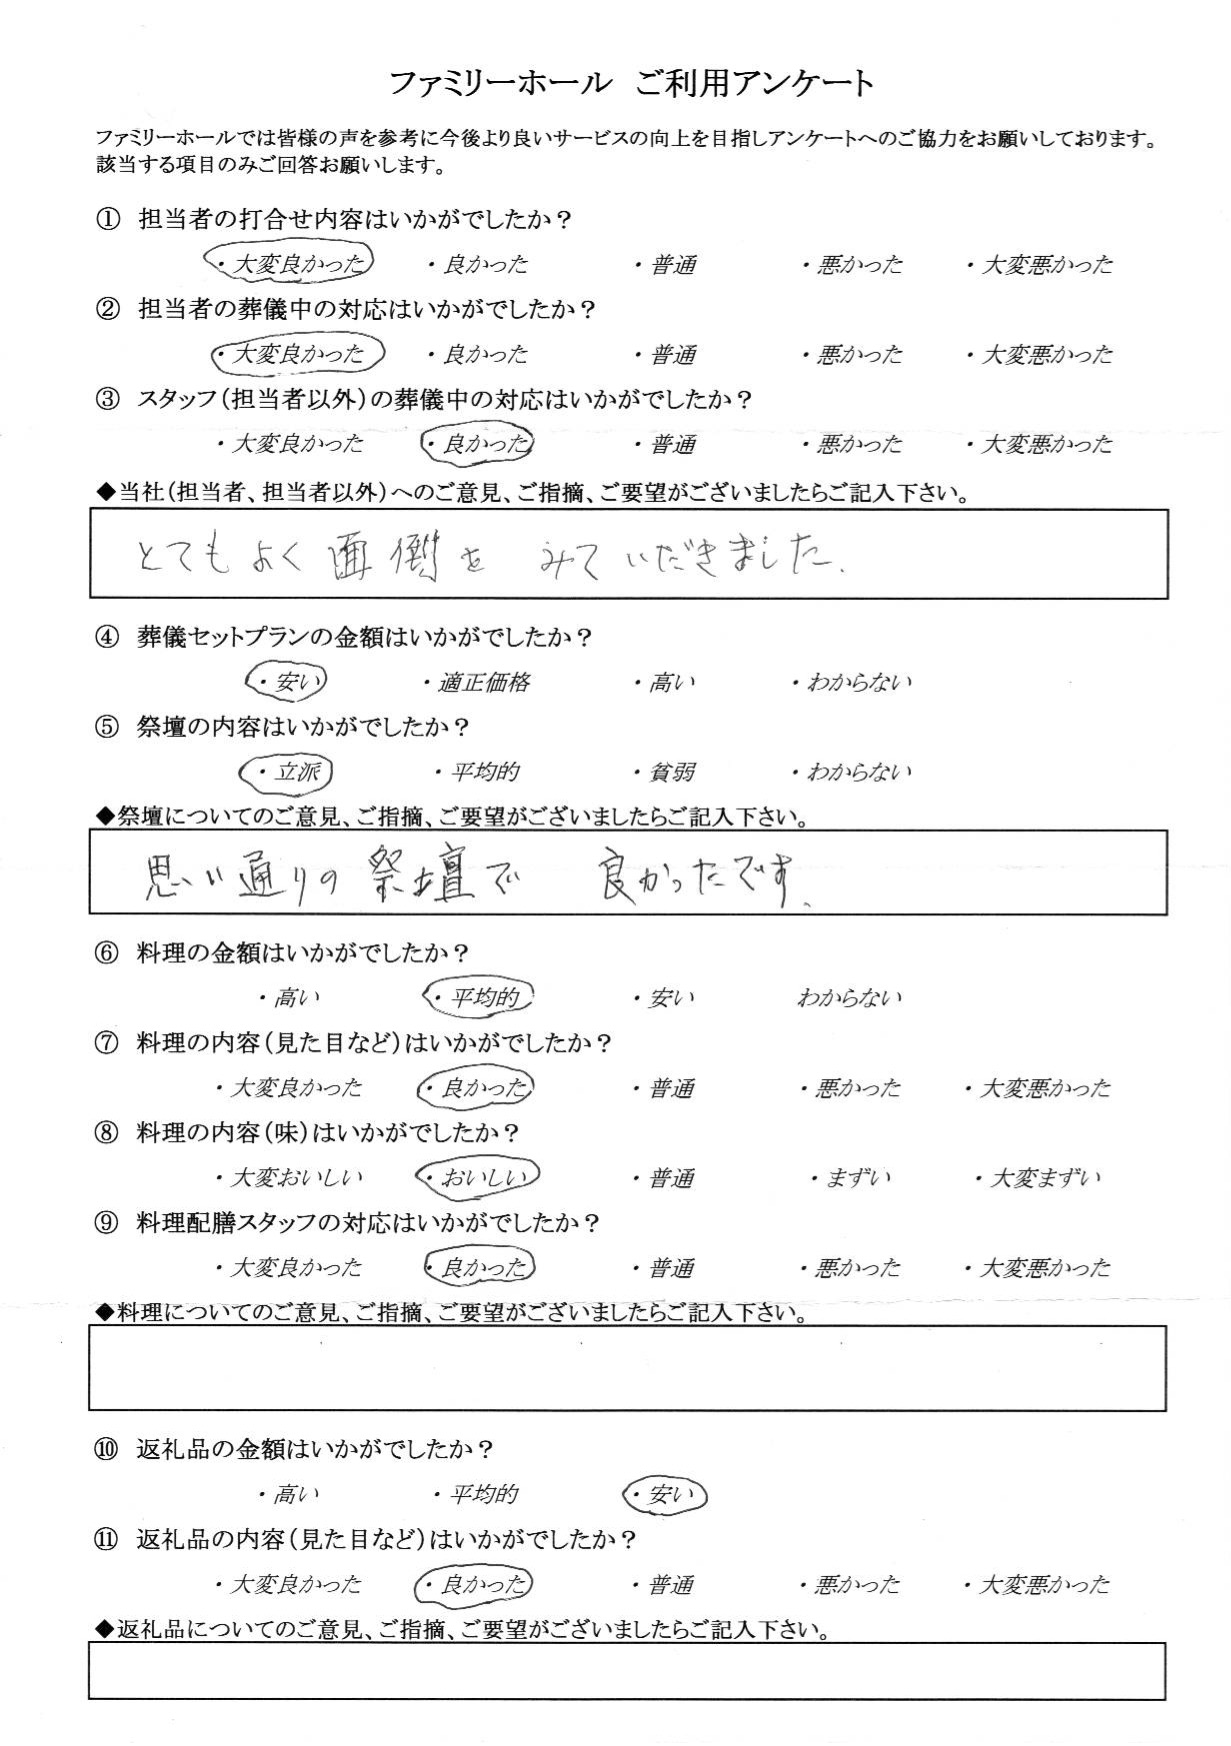 ファミリーホール　ご利用アンケート
ファミリーホールでは皆様の声を参考に今後より良いサービスの向上を目指しアンケートへのご協力をお願いしております。
該当する項目のみご回答お願いします。
① 担当者の打合せ内容はいかがでしたか？
・大変良かった ・良かった ・普通 ・悪かった ・大変悪かった
② 担当者の葬儀中の対応はいかがでしたか？
・大変良かった ・良かった ・普通 ・悪かった ・大変悪かった
③ スタッフ（担当者以外）の葬儀中の対応はいかがでしたか？
・大変良かった ・良かった ・普通 ・悪かった ・大変悪かった
◆当社（担当者、担当者以外）へのご意見、ご指摘、ご要望がございましたらご記入下さい。
とてもよく面倒を みていだきました.
④ 葬儀セットプランの金額はいかがでしたか？
・安い ・適正価格 ・高い ・わからない
⑤ 祭壇の内容はいかがでしたか？
・立派 ・平均的 ・貧弱 ・わからない
◆祭壇についてのご意見、ご指摘、ご要望がございましたらご記入下さい。
思い通りの祭壇で 良かったです、
⑥ 料理の金額はいかがでしたか？
・高い ・平均的 ・安い わからない
⑦ 料理の内容（見た目など）はいかがでしたか？
・大変良かった ・良かった ・普通 ・悪かった ・大変悪かった
⑧ 料理の内容（味）はいかがでしたか？
・大変おいしい ・おいしい ・普通 ・まずい ・大変まずい
⑨ 料理配膳スタッフの対応はいかがでしたか？
・大変良かった ・良かった ・普通 ・悪かった ・大変悪かった
◆料理についてのご意見、ご指摘、ご要望がございましたらご記入下さい。
⑩ 返礼品の金額はいかがでしたか？
・高い ・平均的 ・安い
⑪ 返礼品の内容（見た目など）はいかがでしたか？
・大変良かった ・良かった ・普通 ・悪かった ・大変悪かった
◆返礼品についてのご意見、ご指摘、ご要望がございましたらご記入下さい。